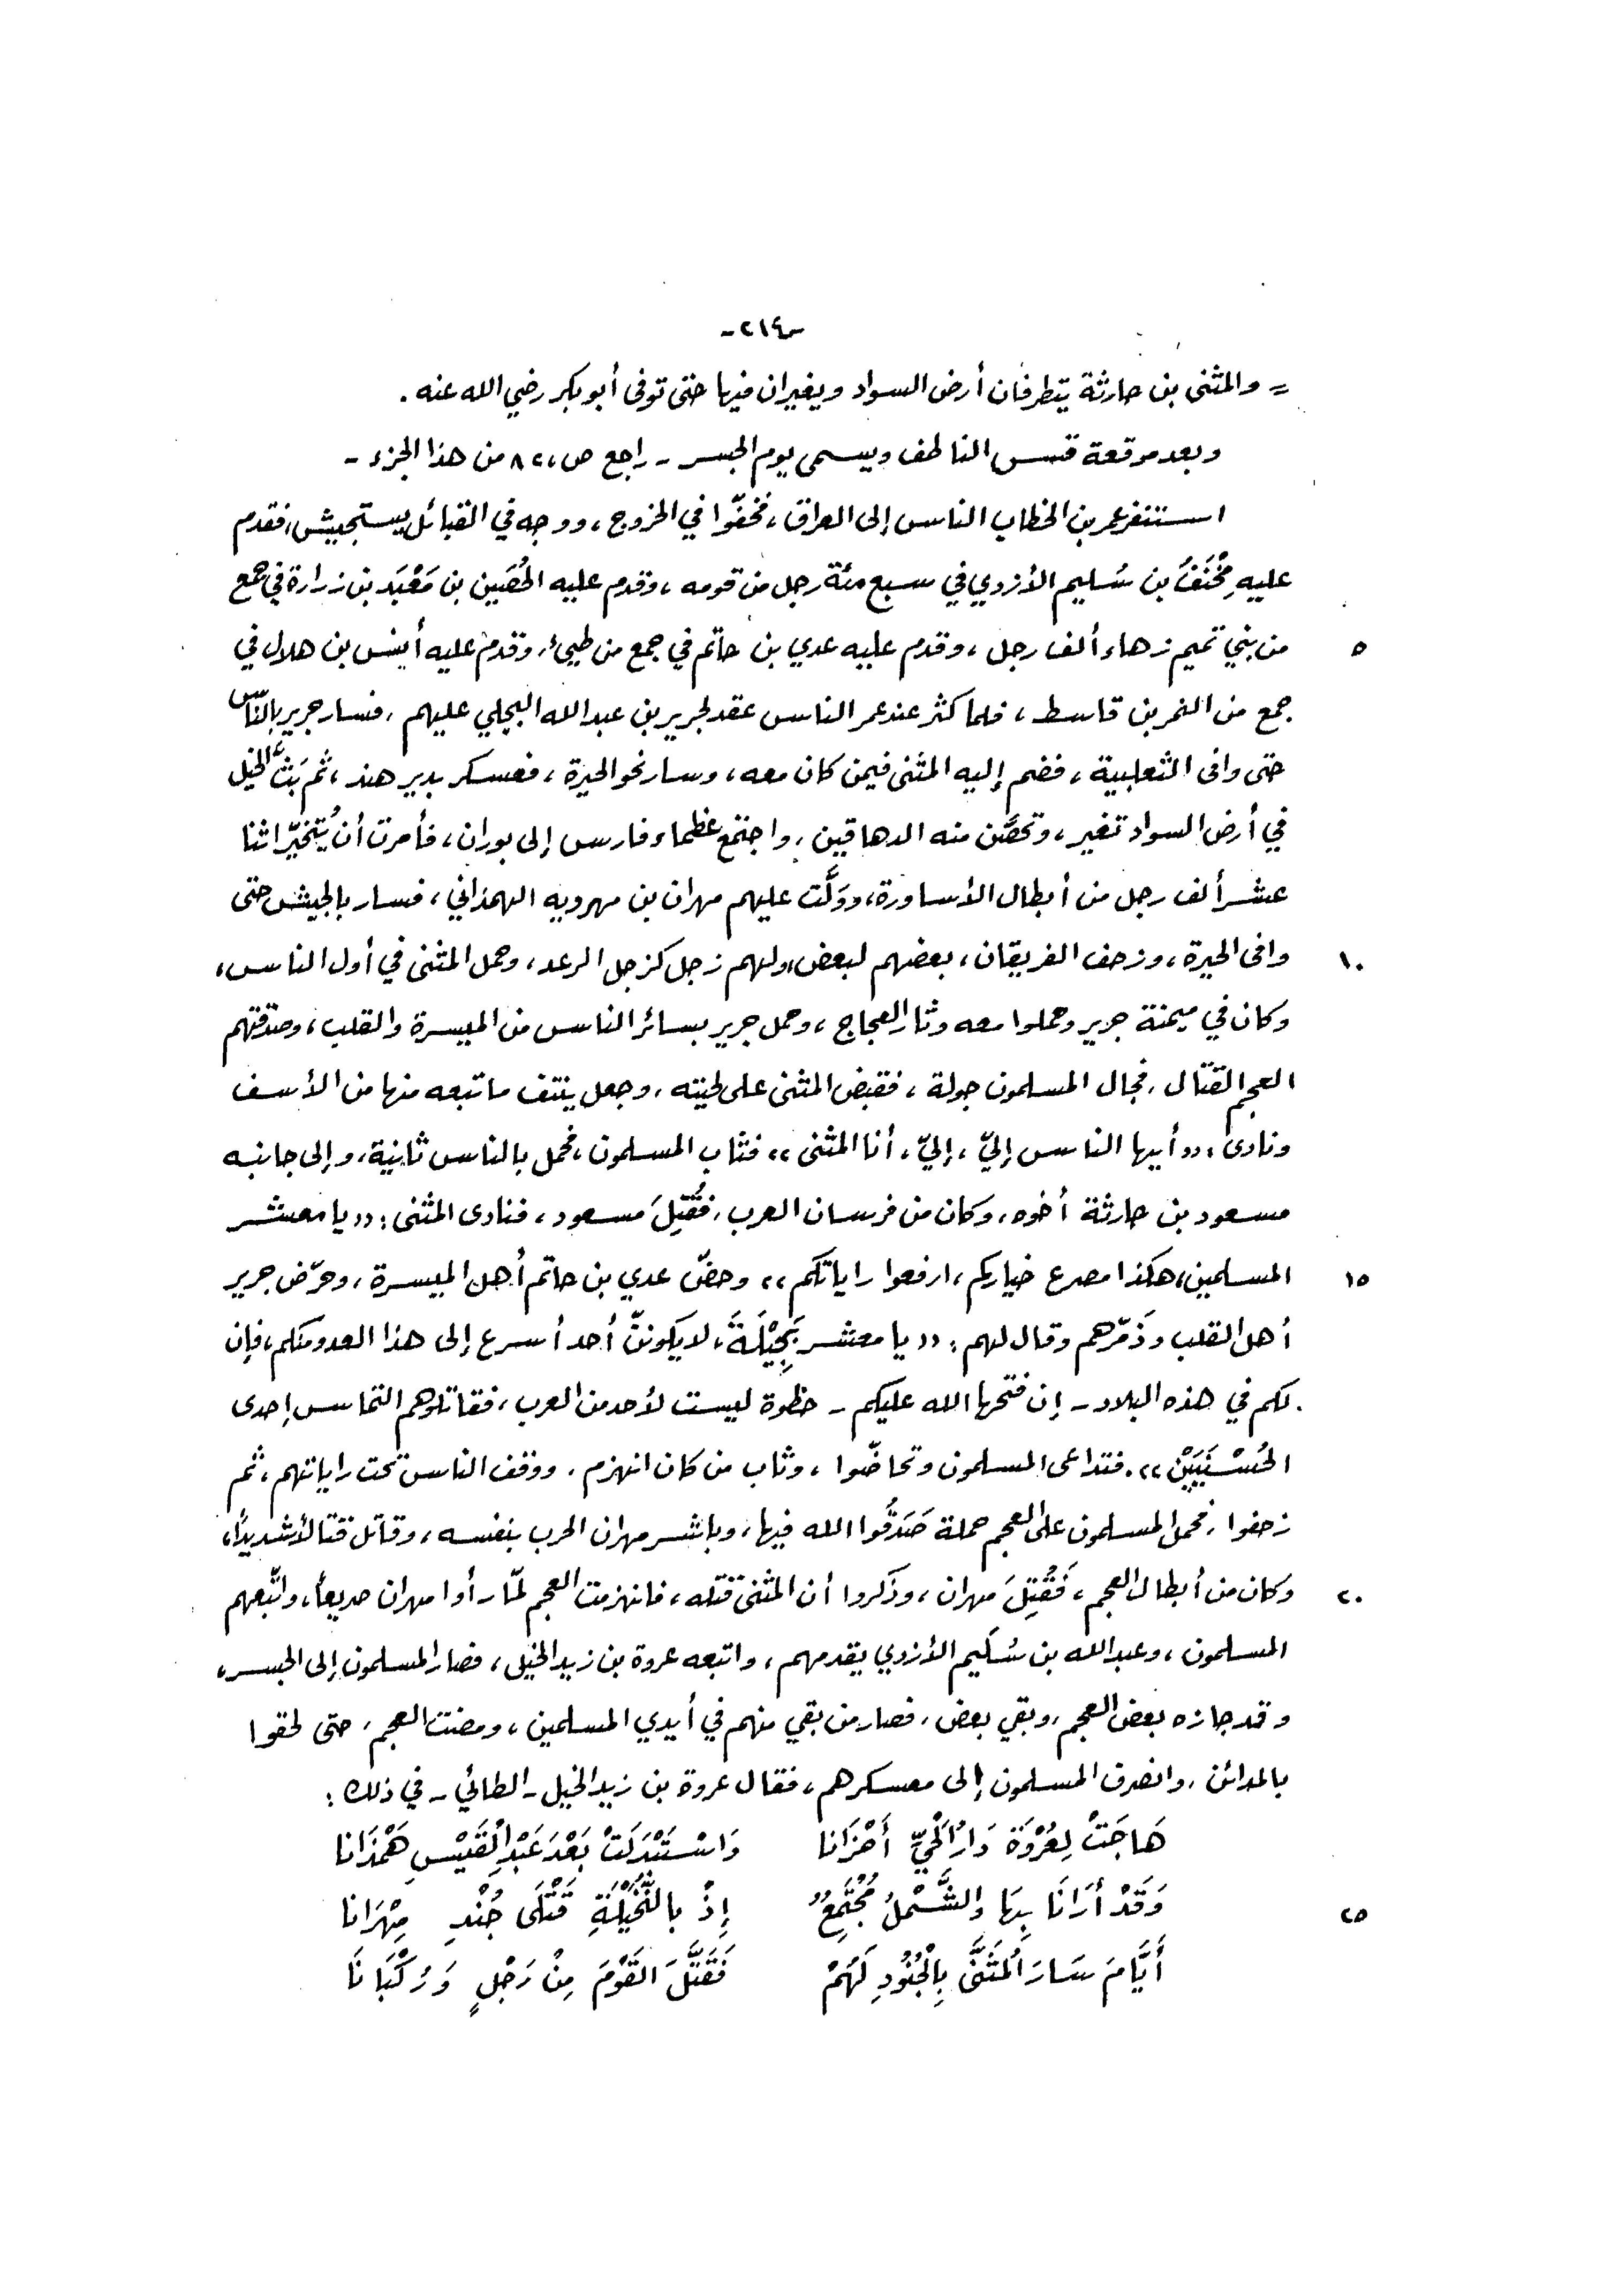 -٢١٤-
= والمثنى بن حارثة يتطرفان أرض السواد ويغيران فيها حتى توفى أبو بكر رضي الله عنه .
وبعد موقعة قسّ الناطف ويسمى يوم الجسر - راجع ص، ٨٢ من هذا الجزء -
استنفر عمر بن الخطاب الناس إلى العراق ، فخفّوا في الخروج ، ووجه في القبائل يستجيش، فقدم
عليه مِخْنَفُ بن سُليم الأزدي في سبع مئة رجل من قومه ، وقدم عليه الحُصَين بن مَعْبَد بن زرارة في جمع
٥ من بني تميم زهاء ألف رجل ، وقدم عليه عدي بن حاتم في جمع من طيئ، وقدم عليه أنيس بن هلال في
جمع من النمر بن قاسط ، فلما كثر عند عمر الناس عقد لجرير بن عبد الله البجلي عليهم ، فسار جرير بالنّاس
حتى وافى الثعلبية ، فضم إليه المثنى فيمن كان معه ، وسار نحو الحيرة ، فعسكر بدير هند ، ثم بَثَّ الخيل
في أرض السواد تغير ، وتحصّن منه الدهاقين ، واجتمع عظماء فارس إلى بوران ، فأمرت أن يُتخيّر اثنا
عشر ألف رجل من أبطال الأساورة ، وولَّت عليهم مهران بن مهرويه الهمذاني ، فسار بالجيش حتى
١٠ وافى الحيرة ، وزحف الفريقان ، بعضهم لبعض، ولهم زجل كزجل الرعد ، وحمل المثنى في أول الناس ،
وكان في ميمنة جرير وحملوا معه وثار العجاج ، وحمل جرير بسائر الناس من الميسرة والقلب ، وصدقتهم
العجم القتال ، فجال المسلمون جولة ، فقبض المثنى على لحيته ، وجعل ينتف ما تبعه منها من الأسف
ونادى : (( أيها الناس إليّ ، إليّ ، أنا المثنى )) فثاب المسلمون ، فحمل بالناس ثانية ، وإلى جانبه
مسعود بن حارثة أخوه ، وكان من فرسان العرب ، فقُتِلَ مسعود ، فنادى المثنى : (( يا معشر
١٥ المسلمين، هكذا مصرع خياركم ، ارفعوا راياتكم )) وحضّ عدي بن حاتم أهل الميسرة ، وحرّض جرير
أهل القلب وذَمّرهم وقال لهم : (( يا معشر بَجِيْلَةَ ، لا يكوننّ أحد أسرع إلى هذا العدو منكم ، فإن
لكم في هذه البلاد - إن فتحها الله عليكم - حظوة ليست لأحد من العرب ، فقاتلوهم التماس إحدى
الحُسْنَيَيْن )) . فتداعى المسلمون وتحاضّوا ، وثاب من كان انهزم ، ووقف الناس تحت راياتهم ، ثم
زحفوا ، فحمل المسلمون على العجم حملة صَدَقُوا الله فيها ، وباشر مهران الحرب بنفسه ، وقاتل قتالاً شديداً ،
٢٠ وكان من أبطال العجم ، فَقُتِلَ مهران ، وذكروا أن المثنى قتله ، فانهزمت العجم لمّا رأوا مهران صريعاً ، واتّبعهم
المسلمون ، وعبد الله بن سُليم الأزدي يقدمهم ، واتبعه عروة بن زيد الخيل ، فصار المسلمون إلى الجسر ،
وقد جازه بعض العجم ، وبقي بعض ، فصار من بقي منهم في أيدي المسلمين ، ومضت العجم ، حتى لحقوا
بالمدائن ، وانصرف المسلمون إلى معسكرهم ، فقال عروة بن زيد الخيل - الطائي - في ذلك :
هَاجَتْ لِعُرْوَةَ دَارُ الْحَيِّ أَحْزَانا وَاسْتَبْدَلَتْ بَعْدَ عَبْدِ الْقَيْسِ هَمْدَانا
٢٥ وَقَدْ أَرَانَا بِهَا وَالشَّمْلُ مُجْتَمِعٌ إِذْ بِالنُّخَيْلَةِ قَتْلَى جُنْدِ مِهْرَانا
أَيَّامَ سَارَ الْمُثَنَّى بِالْجُنُودِ لَهُمْ فَقَتَّلَ الْقَوْمَ مِنْ رَجْلٍ وَرُكْبَانَا